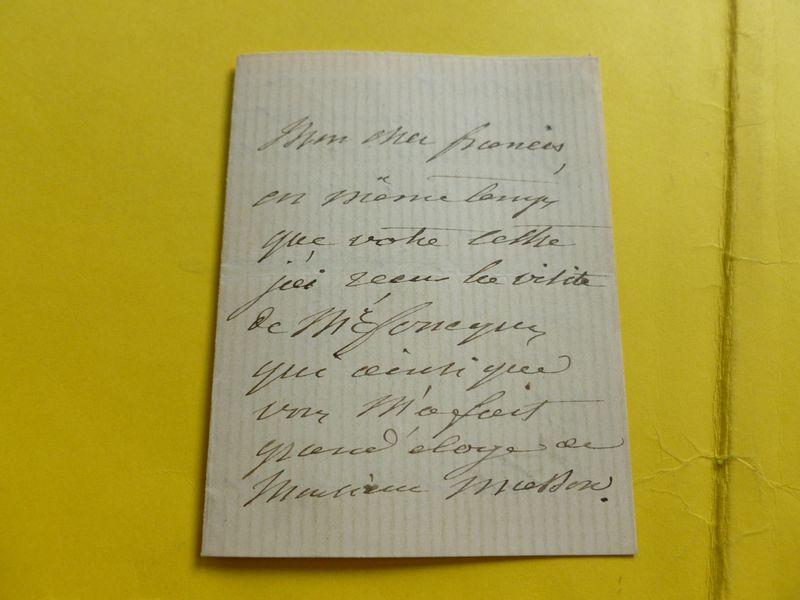 Mon cher francis,
en même temps
que votre lettre
j'ai recu la visite
de Mr foucques
qui ainsi que
vous M'a fait
grand éloge de
Monsieur Masson.